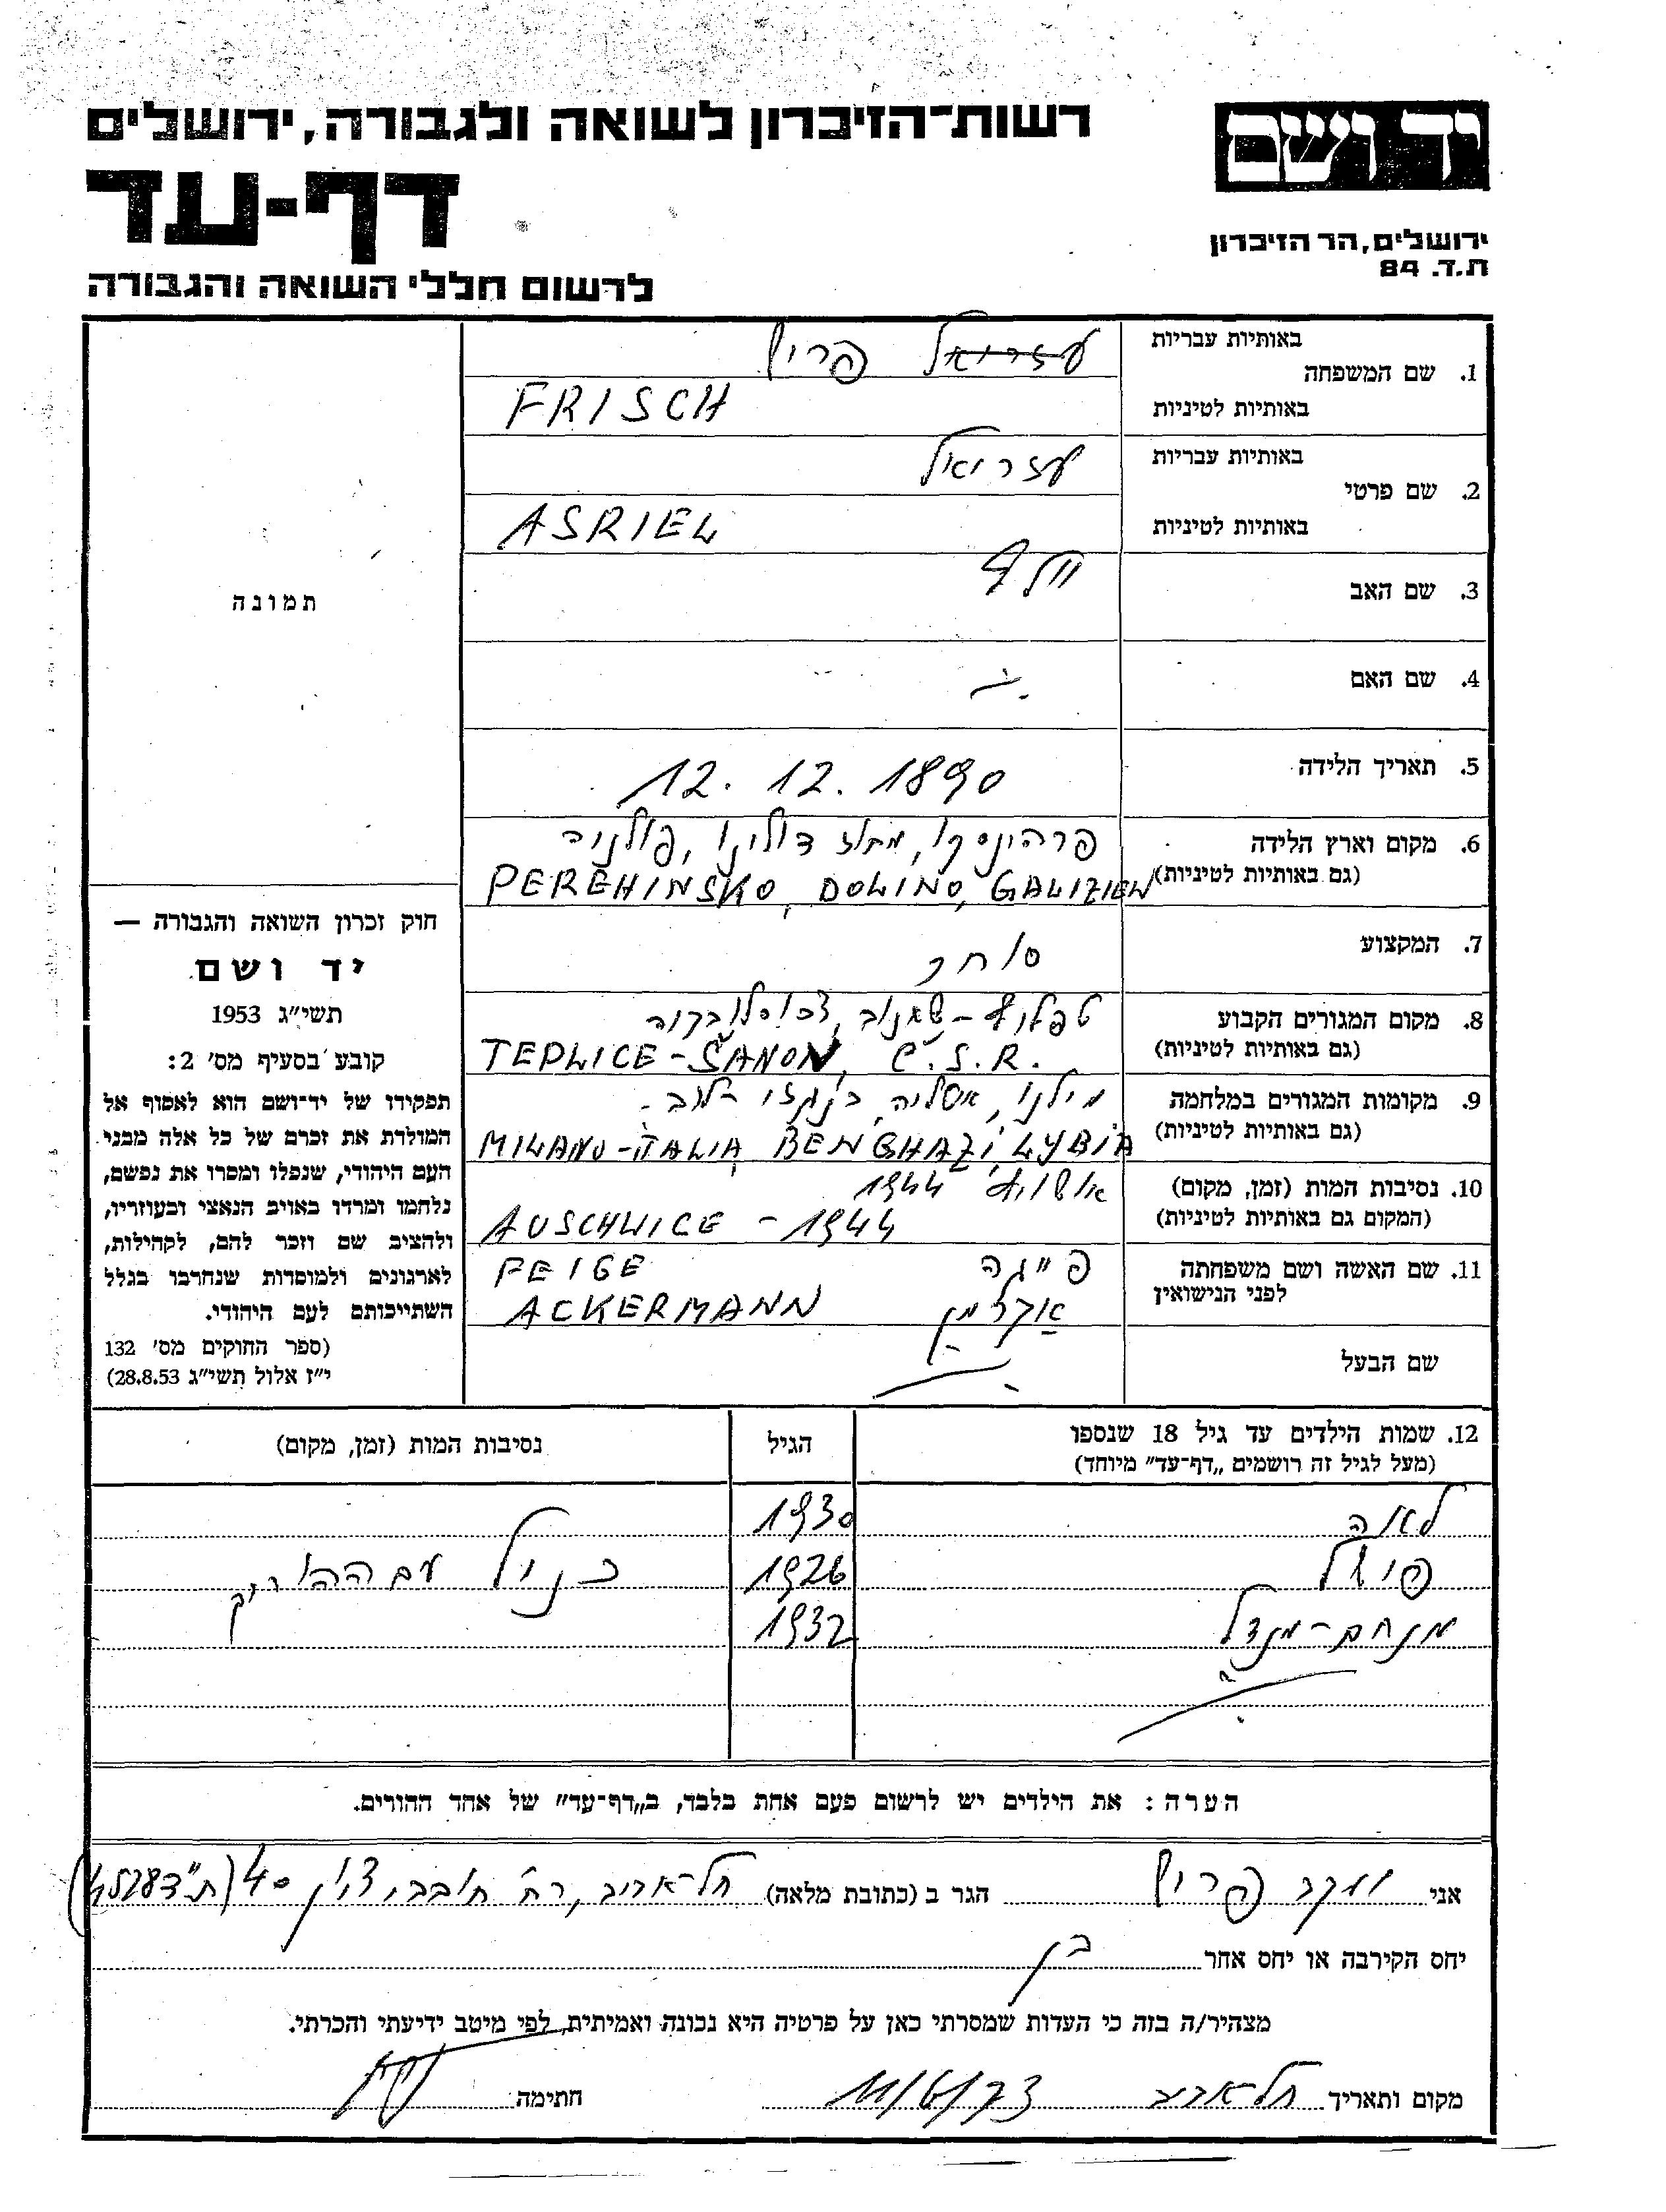 רשות-הזיכרון לשואה ולגבורה, ירושלים
יד ושם
דף-עד
ירושלים, הר הזיכרון
ת.ד. 84
לרשום חללי השואה והגבורה
באותיות עבריות
עזריאל פריש
1. שם המשפחה
באותיות לטיניות
FRISCH
באותיות עבריות
עזריאל
2. שם פרטי
באותיות לטיניות
ASRIEL
3. שם האב
וולף
תמונה
4. שם האם
5. תאריך הלידה
12. 12. 1890
6. מקום וארץ הלידה
פרהינסקו, מחוז דולינו, פולניה
(גם באותיות לטיניות)
PEREHINSKO, DOLINO, GALIZIEN
7. המקצוע
סוחר
8. מקום המגורים הקבוע
טפליץ-שאנוב,
(גם באותיות לטיניות)
TEPLICE-ŠANOV, Č.S.R.
9. מקומות המגורים במלחמה
מילנו, איטליה, בנגזי לוב.
(גם באותיות לטיניות)
MILANO-ITALIA, BENGHAZI LYBIA
10. נסיבות המות (זמן, מקום)
אושויץ 1944
(המקום גם באותיות לטיניות)
AUSCHWICE - 1944
11. שם האשה ושם משפחתה
פייגה
FEIGE
לפני הנישואין
אקרמן
ACKERMANN
שם הבעל
חוק זכרון השואה והגבורה —
יד ושם
תשי״ג 1953
קובע בסעיף מס׳ 2:
תפקידו של יד-ושם הוא לאסוף אל
המולדת את זכרם של כל אלה מבני
העם היהודי, שנפלו ומסרו את נפשם,
נלחמו ומרדו באויב הנאצי ובעוזריו,
ולהציב שם וזכר להם, לקהילות,
לארגונים ולמוסדות שנחרבו בגלל
השתייכותם לעם היהודי.
(ספר החוקים מס׳ 132
י״ז אלול תשי״ג 28.8.53)
12. שמות הילדים עד גיל 18 שנספו
(מעל לגיל זה רושמים „דף-עד״ מיוחד)
הגיל
נסיבות המות (זמן, מקום)
לאה
1930
פייגל
1926
כנ״ל עם ההורים
מנחם-מנדל
1932
הערה: את הילדים יש לרשום פעם אחת בלבד, ב„דף-עד״ של אחד ההורים.
אני יעקב פריש הגר ב (כתובת מלאה) תל-אביב, רח׳ חובבי ציון 40 (ת״ד 45284)
יחס הקירבה או יחס אחר בן
מצהיר/ה בזה כי העדות שמסרתי כאן על פרטיה היא נכונה ואמיתית, לפי מיטב ידיעתי והכרתי.
מקום ותאריך תל-אביב
חתימה